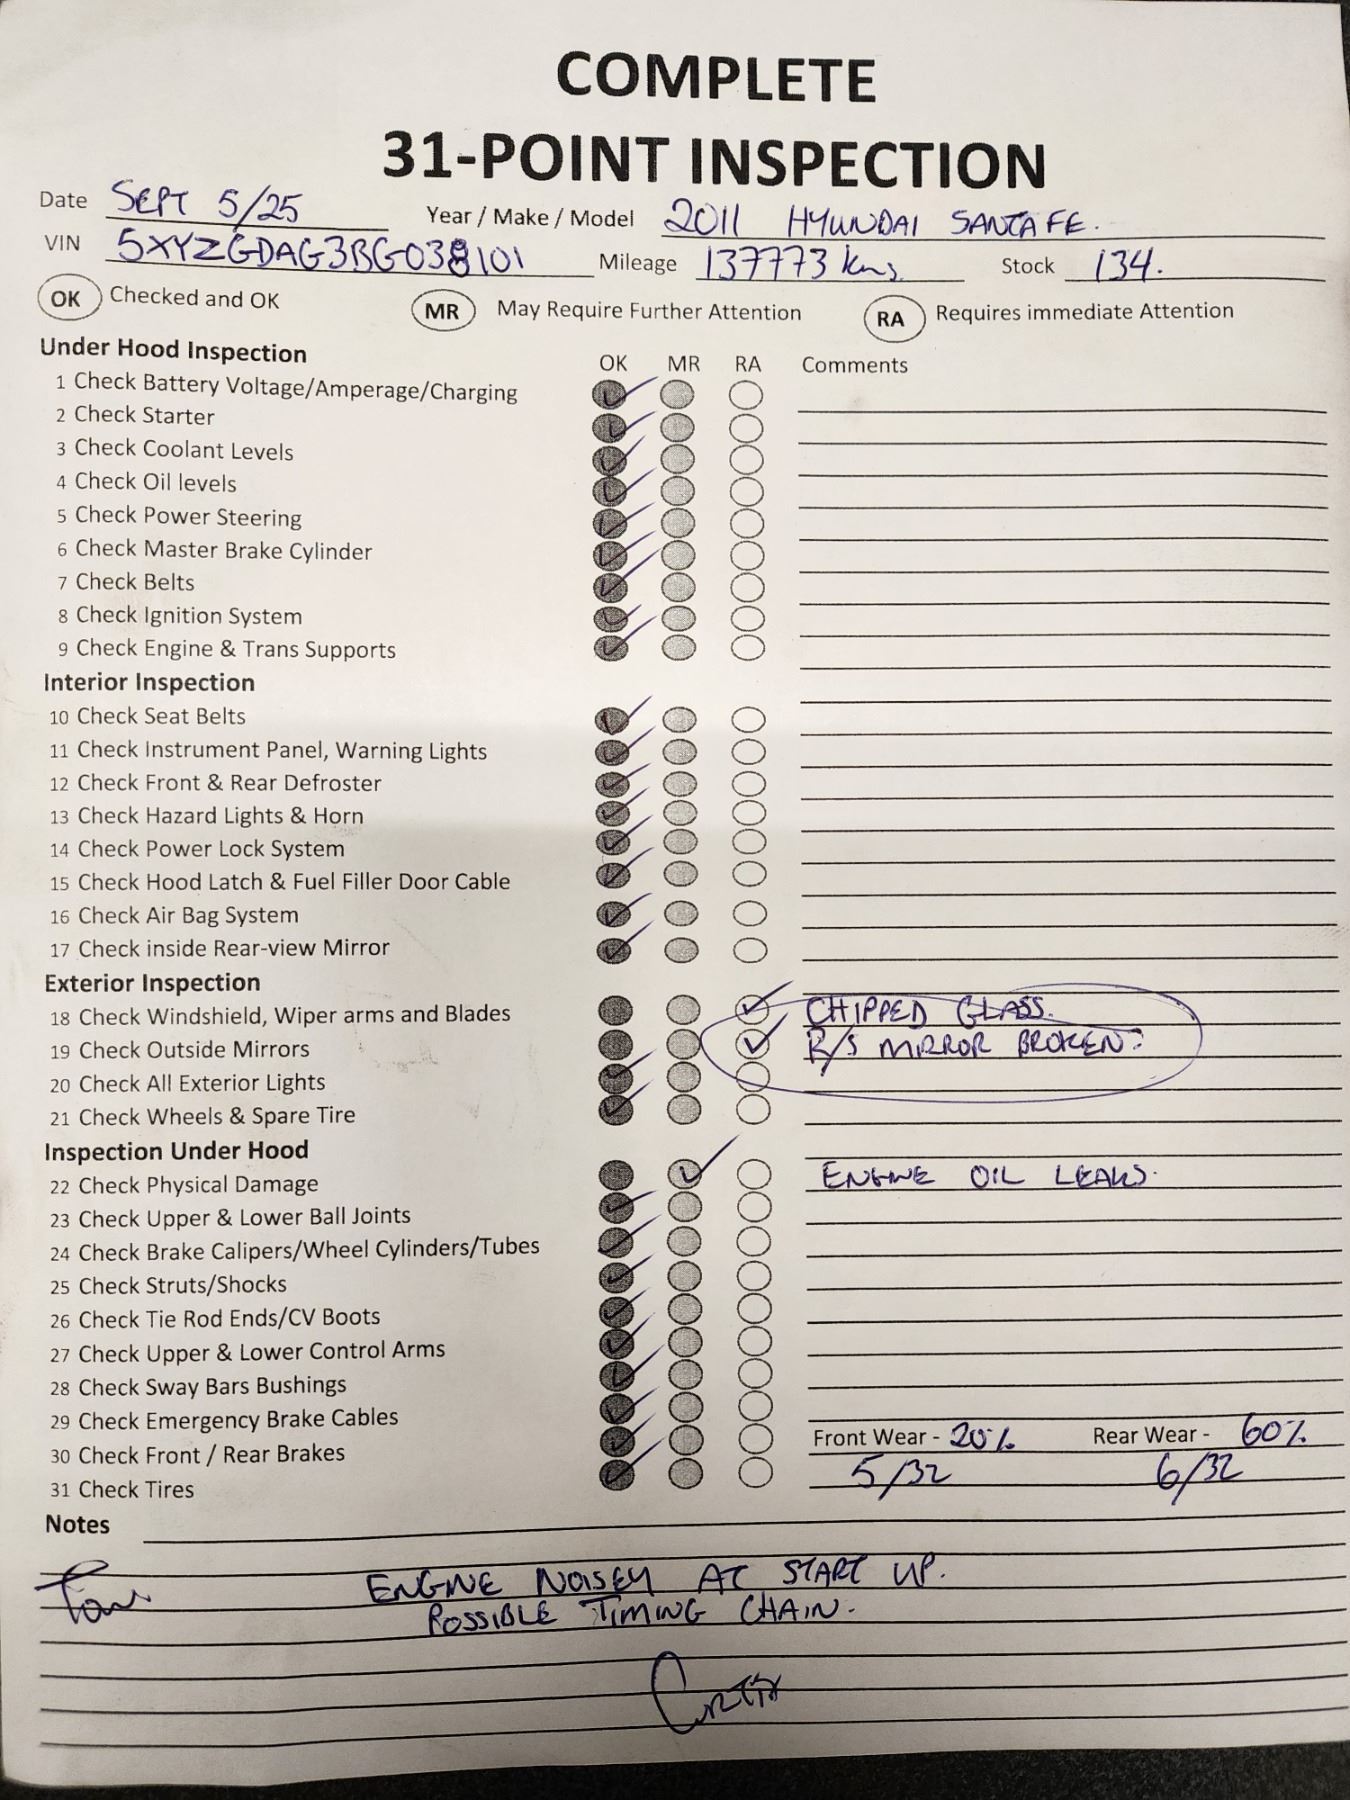 COMPLETE
31-POINT INSPECTION
Date SEPT 5/25 Year / Make / Model 2011 HYUNDAI SANTA FE.
VIN 5XYZGDAG3BG038101 Mileage 137773 kms. Stock 134.
OK Checked and OK MR May Require Further Attention RA Requires immediate Attention
Under Hood Inspection OK MR RA Comments
1 Check Battery Voltage/Amperage/Charging
2 Check Starter
3 Check Coolant Levels
4 Check Oil levels
5 Check Power Steering
6 Check Master Brake Cylinder
7 Check Belts
8 Check Ignition System
9 Check Engine & Trans Supports
Interior Inspection
10 Check Seat Belts
11 Check Instrument Panel, Warning Lights
12 Check Front & Rear Defroster
13 Check Hazard Lights & Horn
14 Check Power Lock System
15 Check Hood Latch & Fuel Filler Door Cable
16 Check Air Bag System
17 Check inside Rear-view Mirror
Exterior Inspection
18 Check Windshield, Wiper arms and Blades CHIPPED GLASS.
19 Check Outside Mirrors R/S MIRROR BROKEN.
20 Check All Exterior Lights
21 Check Wheels & Spare Tire
Inspection Under Hood
22 Check Physical Damage ENGINE OIL LEAKS.
23 Check Upper & Lower Ball Joints
24 Check Brake Calipers/Wheel Cylinders/Tubes
25 Check Struts/Shocks
26 Check Tie Rod Ends/CV Boots
27 Check Upper & Lower Control Arms
28 Check Sway Bars Bushings
29 Check Emergency Brake Cables
30 Check Front / Rear Brakes Front Wear - 20% Rear Wear - 60%
31 Check Tires 5/32 6/32
Notes
ENGINE NOISEY AT START UP.
POSSIBLE TIMING CHAIN.